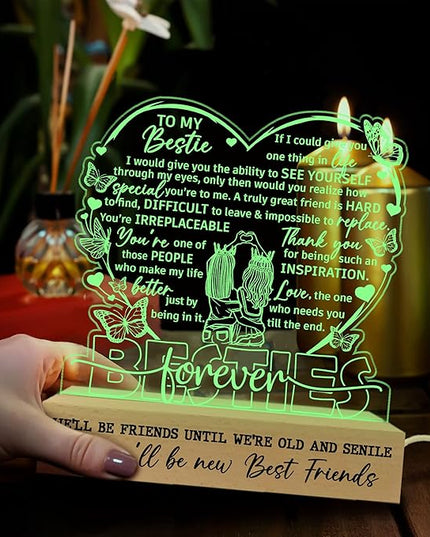 TO MY
Bestie
If I could give you
one thing in life
I would give you the ability to SEE YOURSELF
through my eyes, only then would you realize how
special you're to me. A truly great friend is HARD
to find, DIFFICULT to leave & impossible to replace.
You're IRREPLACEABLE
You're one of
those PEOPLE
who make my life
better just by
being in it.
Thank you
for being such an
INSPIRATION.
Love, the one
who needs you
till the end.
BESTIES
forever
WE'LL BE FRIENDS UNTIL WE'RE OLD AND SENILE
'll be new Best Friends